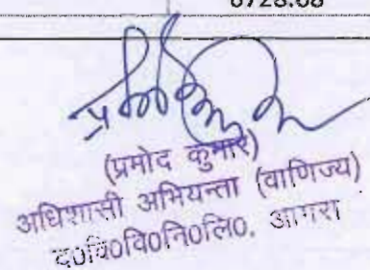 6728.68
(प्रमोद कुमार)
अधिशासी अभियन्ता (वाणिज्य)
द०वि०वि०नि०लि०, आगरा